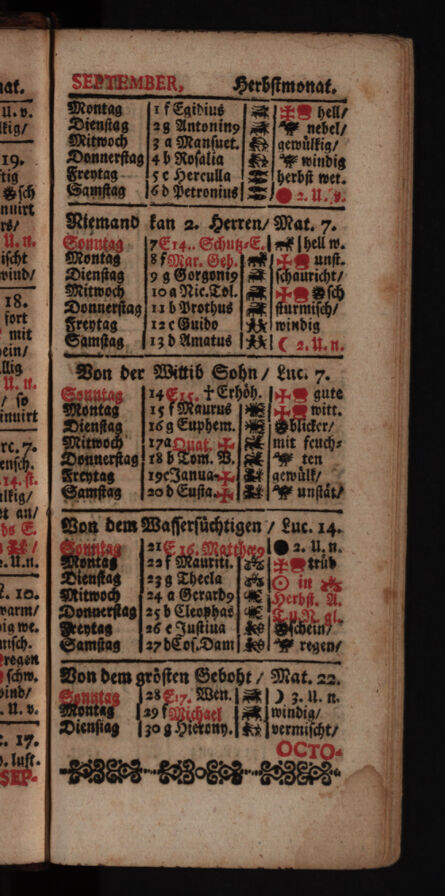 SEPTEMBER, Herbstmonat.
Montag 1 f Egidius hell/
Dienstag 2 g Antonin9 nebel/
Mitwoch 3 a Mansuet. gewülkig/
Donnerstag 4 b Rosalia windig
Freytag 5 c Herculla herbst wet.
Samstag 6 d Petronius 2. U. v.
Niemand kan 2. Herren/ Mat. 7.
Sonntag 7 E 14.. Schutz-E. hell w.
Montag 8 f Mar. Geb. unst.
Dienstag 9 g Gorgoni9 schauricht/
Mitwoch 10 a Nic. Tol. sch
Donnerstag 11 b Prothus stürmisch/
Freytag 12 c Guido windig
Samstag 13 d Amatus ☾ 2. U. n.
Von der Wittib Sohn/ Luc. 7.
Sonntag 14 E 15. † Erhöh. gute
Montag 15 f Maurus witt.
Dienstag 16 g Euphem. blicker/
Mitwoch 17 a Quat. mit feuch-
Donnerstag 18 b Tom. V. ten
Freytag 19 c Janua. gewülk/
Samstag 20 d Eusta. unstät/
Von dem Wassersüchtigen / Luc. 14.
Sonntag 21 E 16. Matthæ9 2. U. n.
Montag 22 f Mauriti. trüb
Dienstag 23 g Thecla ☉ in
Mitwoch 24 a Gerard9 Herbst. A.
Donnerstag 25 b Cleophas T. u. N. gl.
Freytag 26 c Justina schein/
Samstag 27 d Cos. Dam regen/
Von dem grösten Geboht / Mat. 22.
Sonntag 28 E 17. Wen. ☽ 3. U. n.
Montag 29 f Michael windig/
Dienstag 30 g Hierony. vermischt/
OCTO-